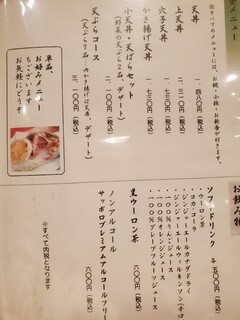 ※すべてのメニューに、お椀・小鉢・お新香が付きます。
天丼 一、四八〇円(税込)
上天丼
穴子天丼 一、七三〇円(税込)
かき揚げ天丼 一、七三〇円(税込)
小天丼・天ばらセット
(野菜の天ぷら2品、デザート)
天ぷらコース 三、一〇〇円(税込)
(天ぷら7品・内かき揚げ天丼、デザート)
単品、
お好みメニュー
もございます
お気軽にどうぞ
お飲み物
ソフトドリンク 各五〇〇円(税込)
・ウーロン茶
・コカ・コーラ
・ジンジャーエールカナダドライ
・ジンジャーエールウィルキンソン(辛口)
・100%りんごジュース
・100%オレンジジュース
・100%グレープフルーツジュース
黒ウーロン茶 六〇〇円(税込)
ノンアルコール
サッポロプレミアムアルコールフリー
六〇〇円(税込)
※すべて内税となります